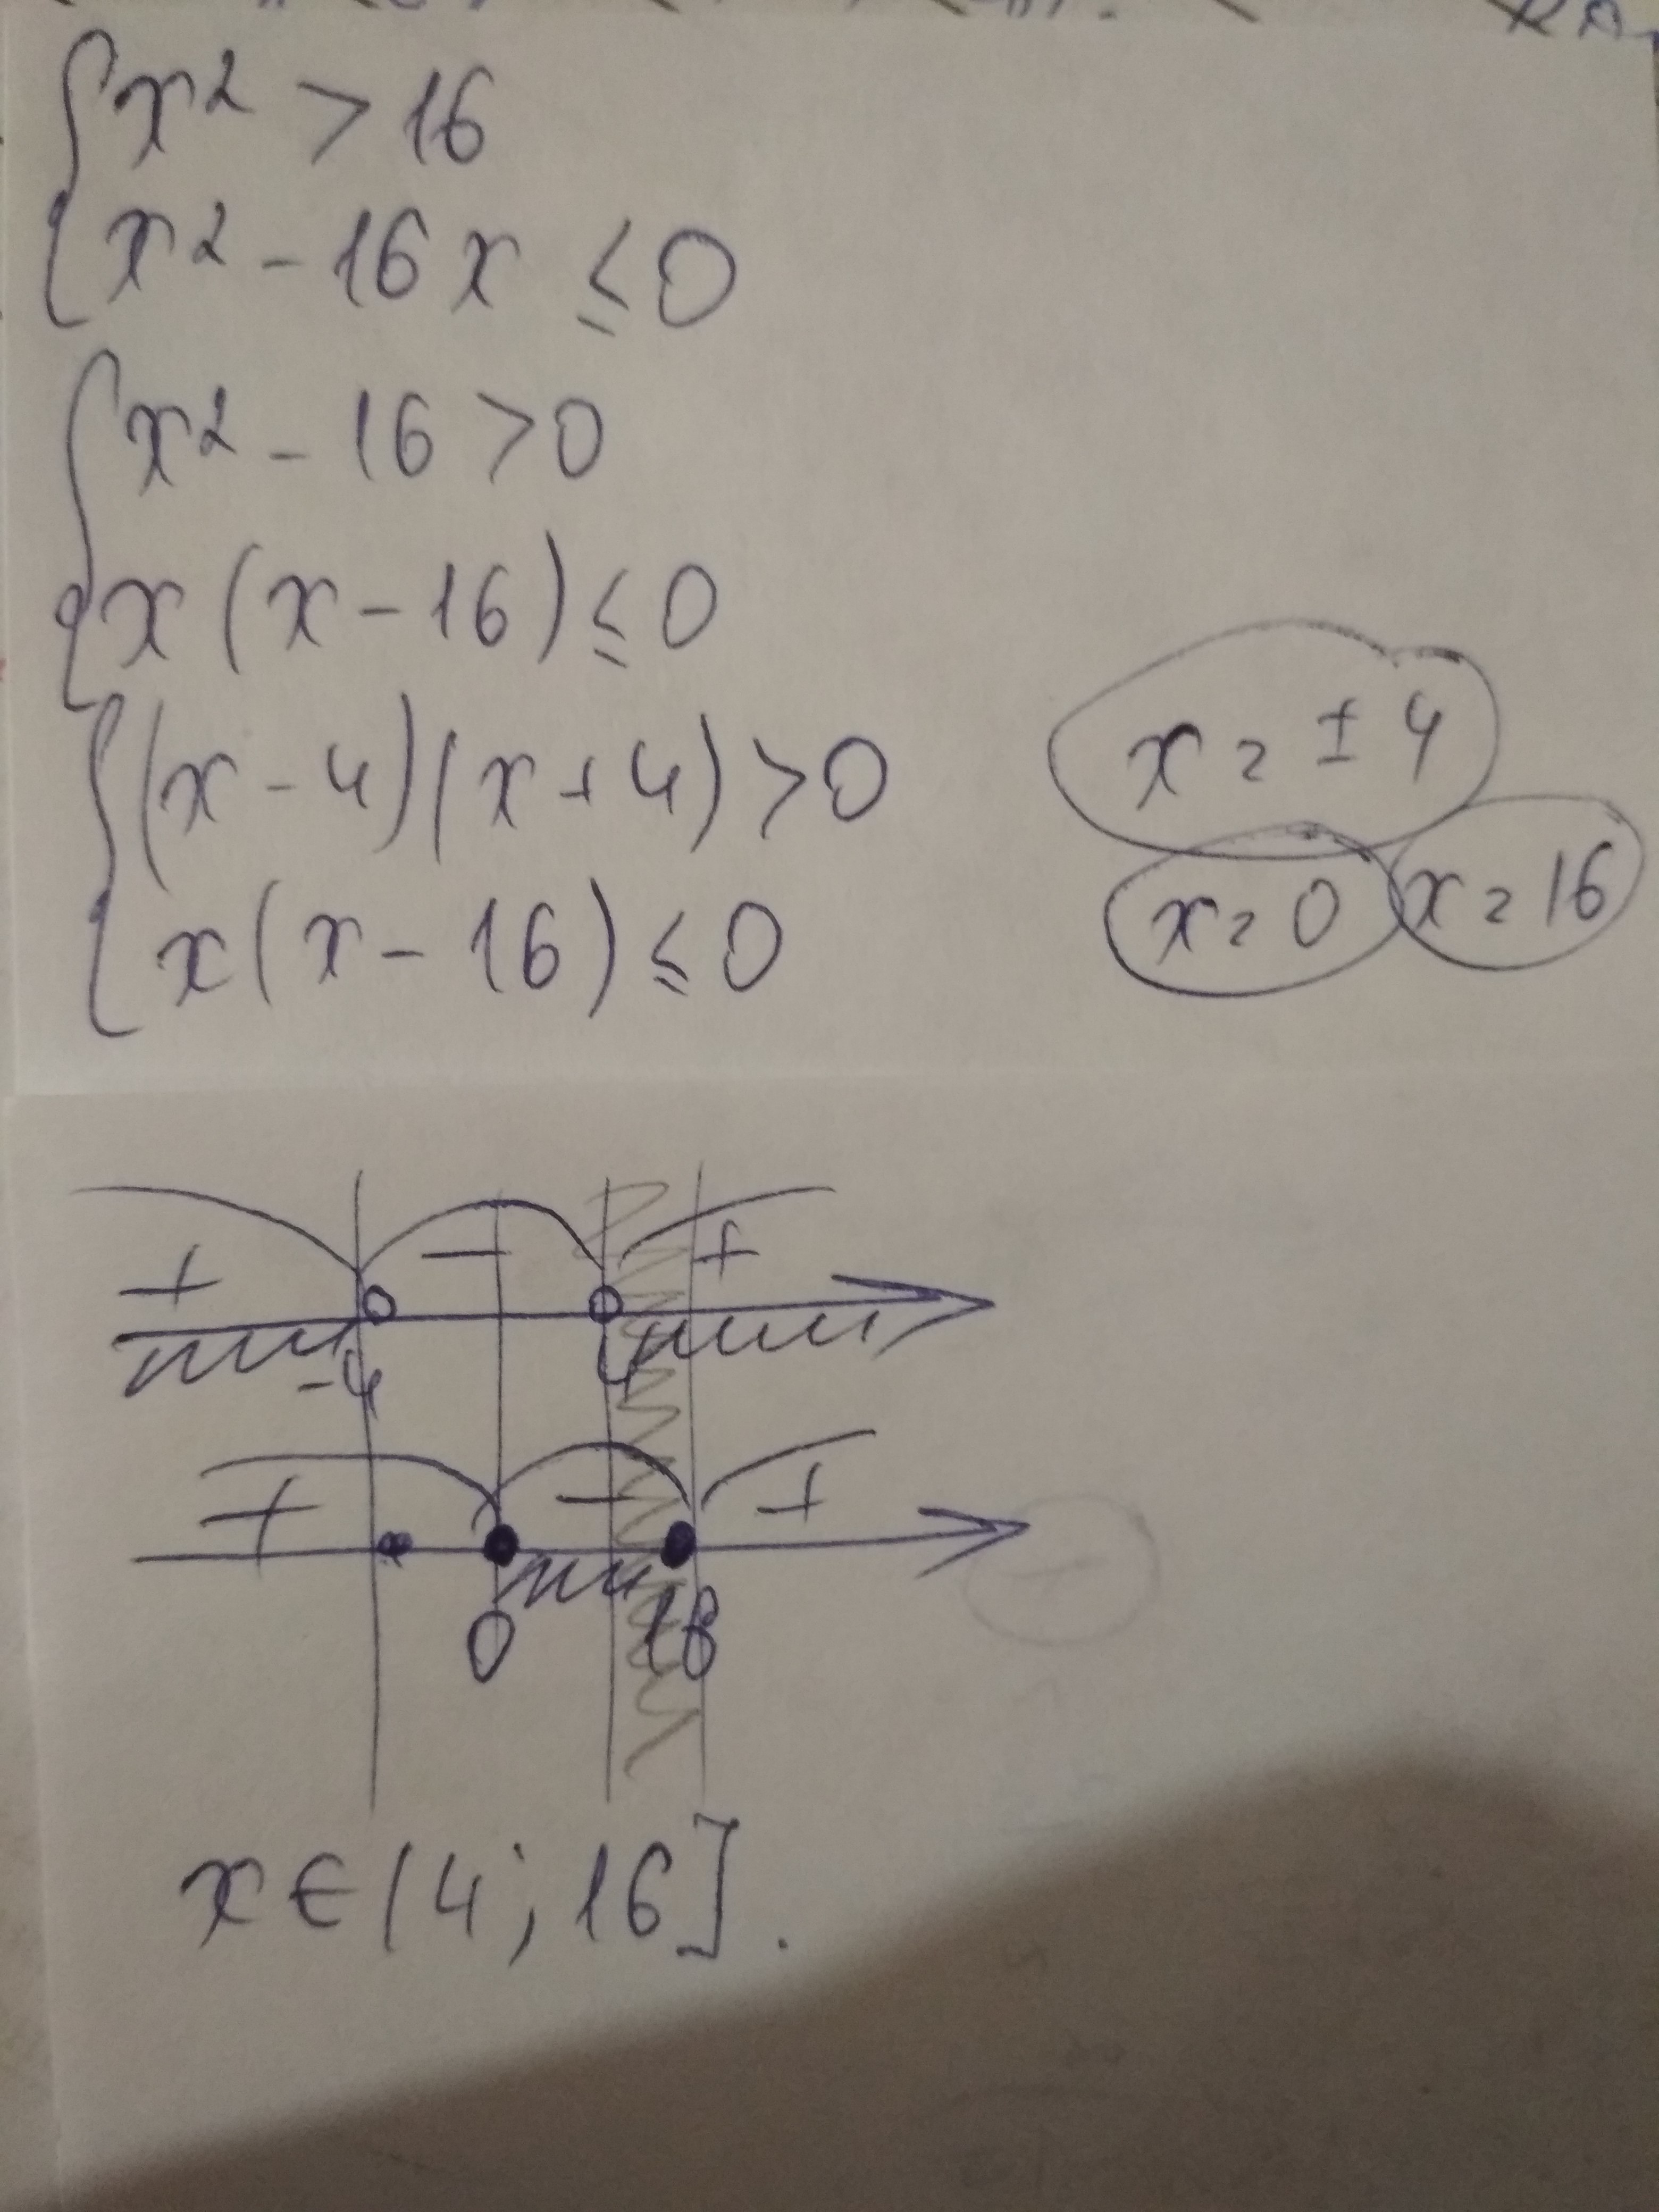 x² > 16
x² - 16x ≤ 0
x² - 16 > 0
x(x - 16) ≤ 0
(x - 4)(x + 4) > 0
x = ± 4
x(x - 16) ≤ 0
x = 0 x = 16
+ - +
-4 4
+ - +
0 16
x ∈ (4; 16].